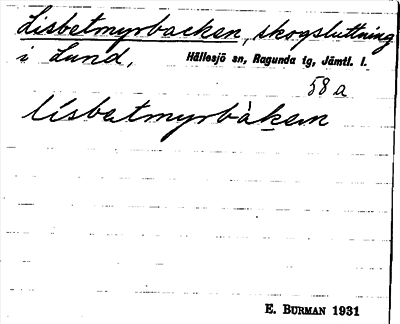 Lisbetmyrbacken, skogsluttning
i Lund. Hällesjö sn, Ragunda tg, Jämtl. l.
58 a
lísbetmyrbàken
E. BURMAN 1931